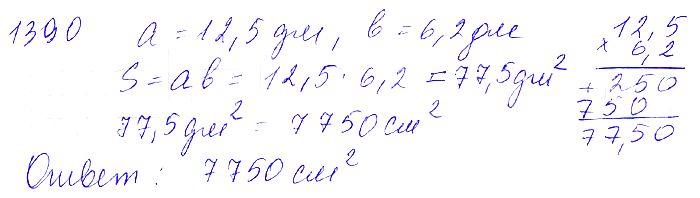 1390 a = 12,5 дм, b = 6,2 дм
S = ab = 12,5 · 6,2 = 77,5 дм²
77,5 дм² = 7750 см²
Ответ: 7750 см²
12,5
× 6,2
+ 250
750
77,50